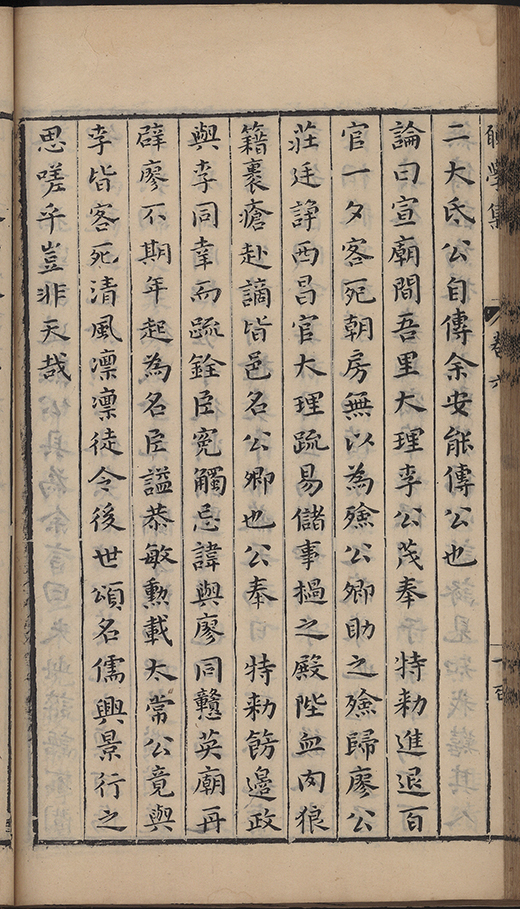 二大氐公自傳余安能傳公也
論曰宣廟間吾里大理李公茂奉　特勑進退百
官一夕客死朝房無以為殮公卿助之殮歸廖公
莊廷諍西昌官大理疏易儲事撾之殿陛血肉狼
籍裹瘡赴謫皆邑名公卿也公奉　特勑飭邊政
與李同幸而疏銓臣寃觸忌諱與廖同戇英廟再
辟廖不期年起為名臣謚恭敏勳載太常公竟與
李皆客死清風凛凛徒令後世頌名儒興景行之
思嗟乎豈非天哉
卷六